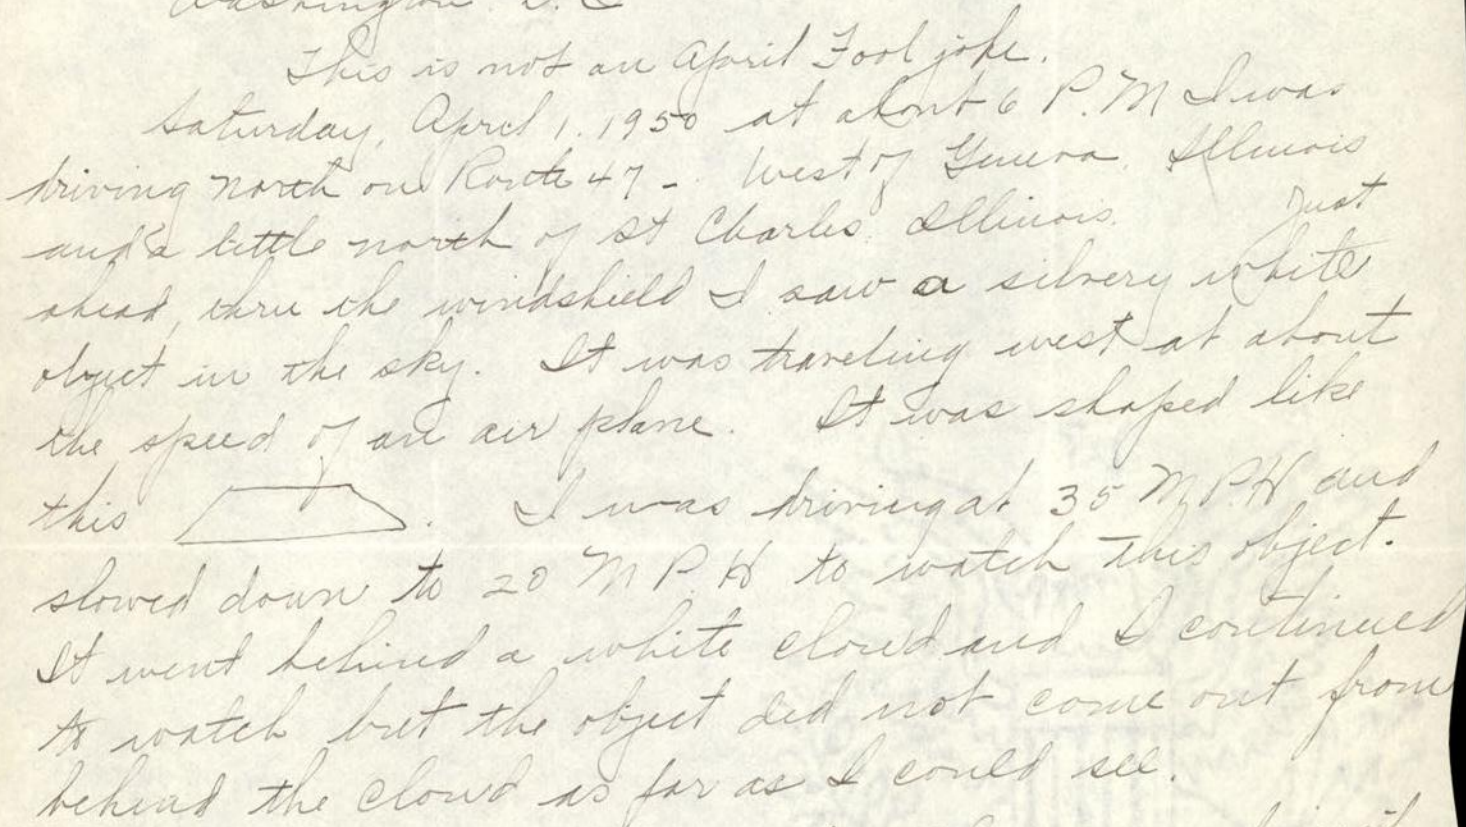 Washington. D.C
This is not an April Fool joke.
Saturday, April 1. 1950 at about 6 P.M I was
driving north on Route 47 - West of Geneva, Illinois
and a little north of St Charles. Illinois. Just
ahead, thru the windshield I saw a silvery white
object in the sky. It was traveling west at about
the speed of an air plane. It was shaped like
this . I was driving at 35 M.P.H and
slowed down to 20 M.P.H to watch this object.
It went behind a white cloud and I continued
to watch but the object did not come out from
behind the cloud as far as I could see.